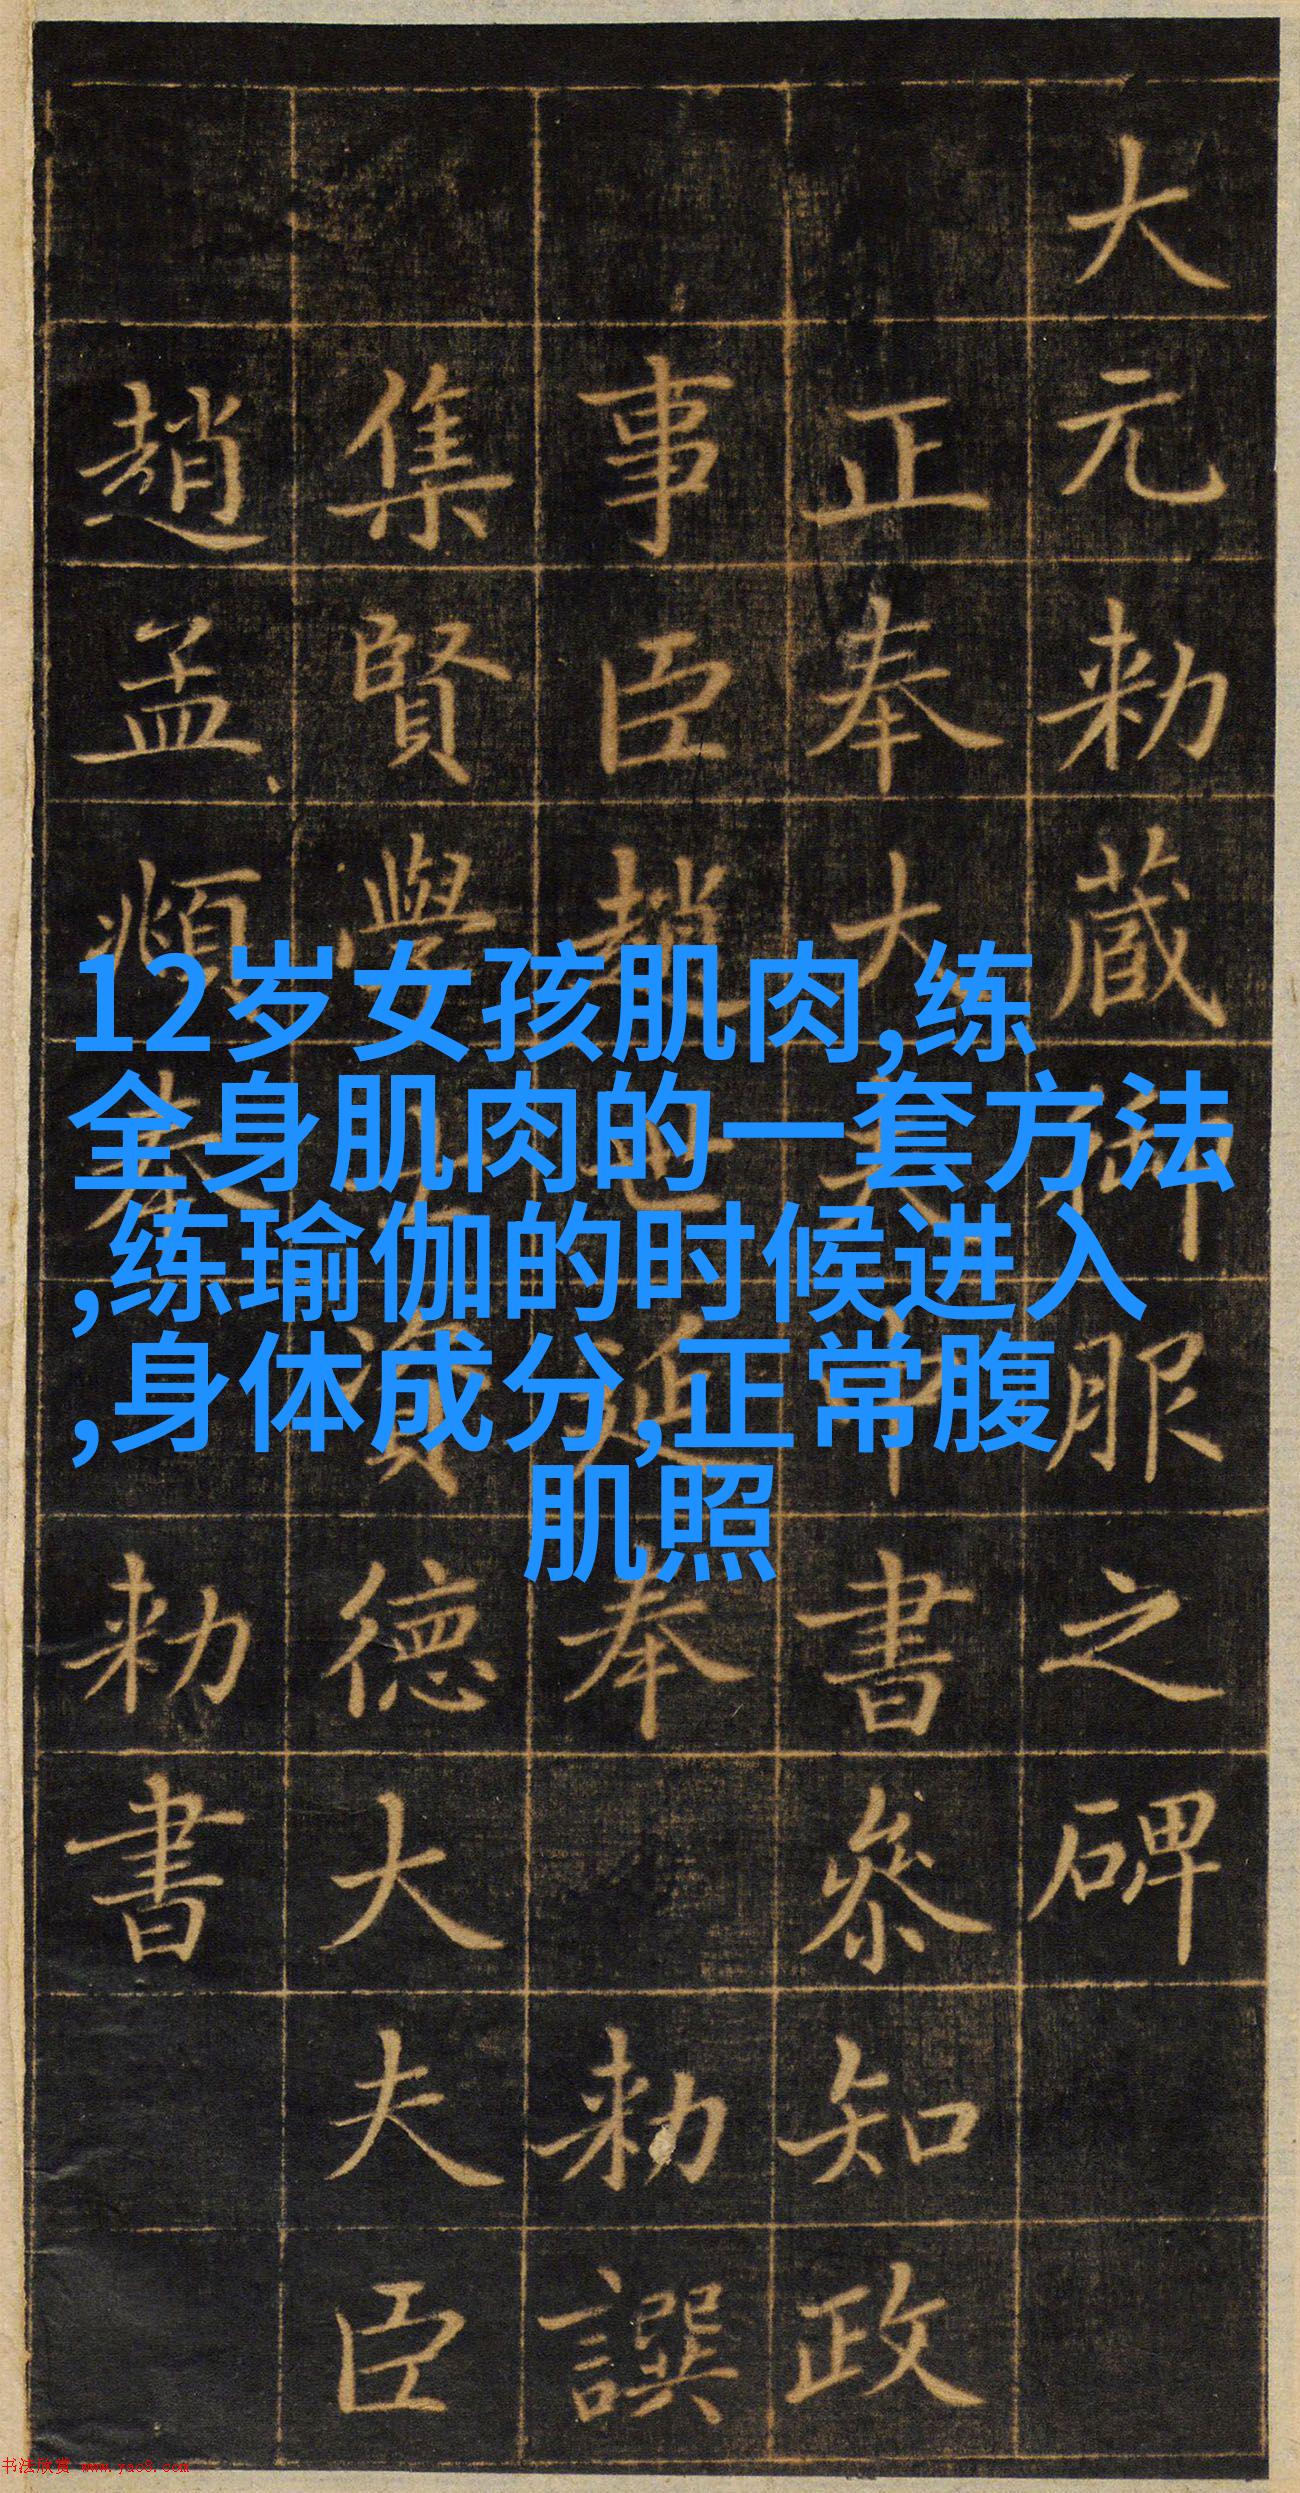 大元勑藏御服之碑
正奉大夫中書參知政
事臣趙世延奉 勑譔
集賢學士資德大夫臣
趙孟頫奉 勑書
12岁女孩肌肉,练
全身肌肉的一套方法
,练瑜伽的时候进入
,身体成分,正常腹
肌照
书法欣赏 www.yac8.com